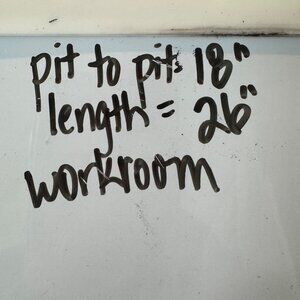 pit to pit: 18"
length = 26"
workroom